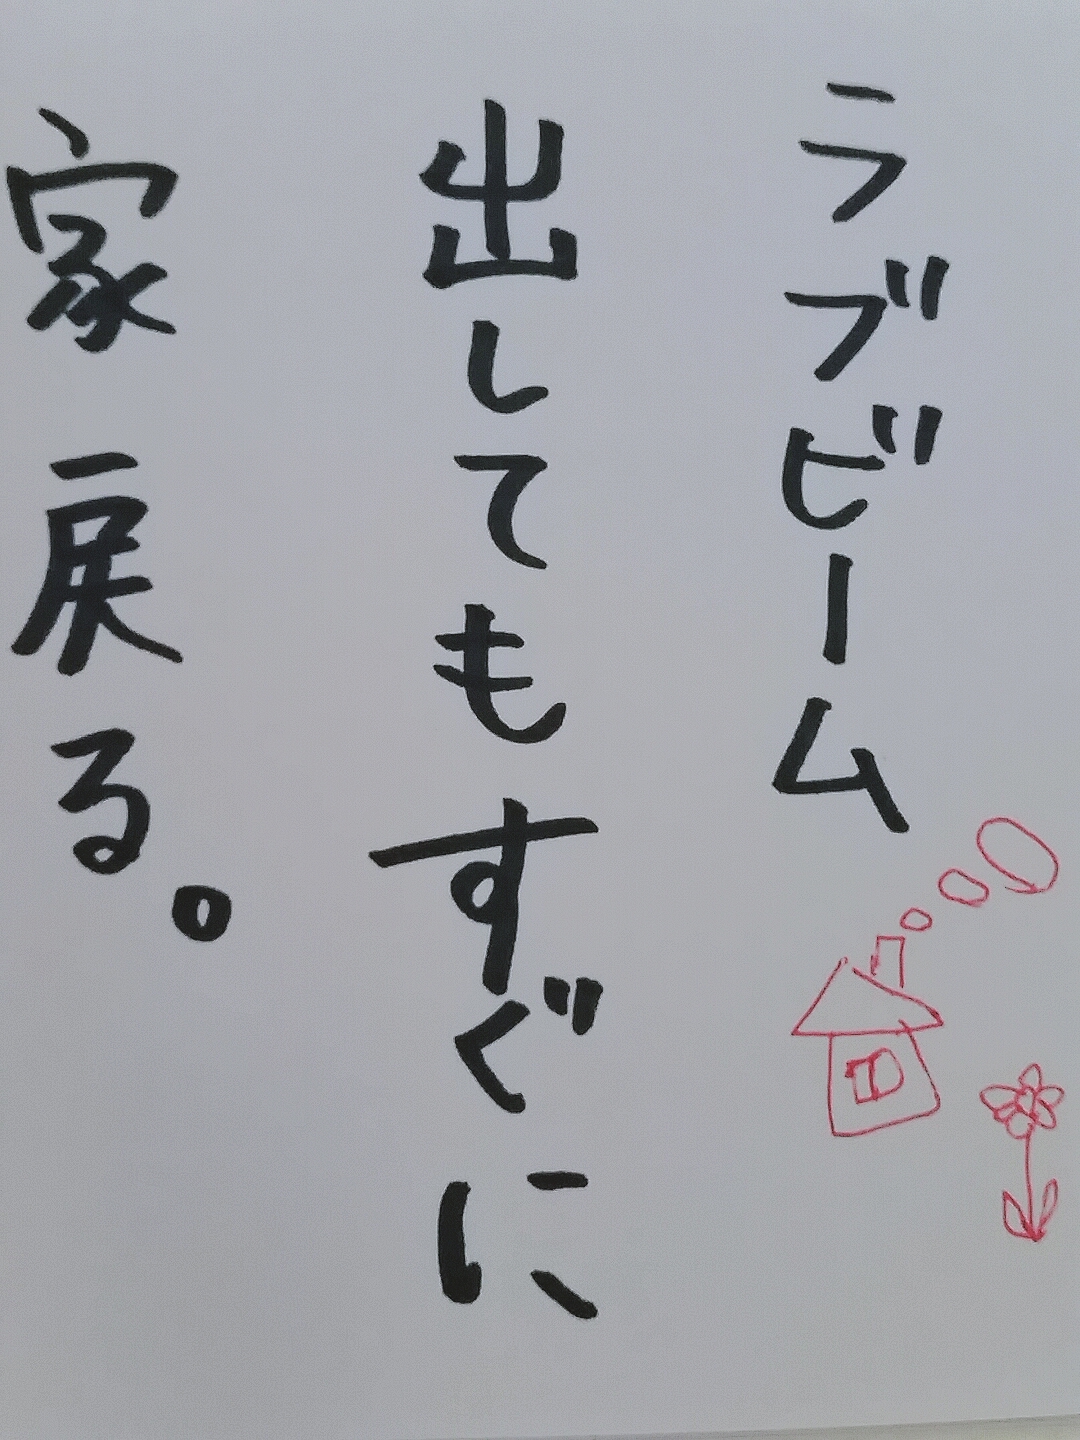 ラブビーム
出してもすぐに
家戻る。